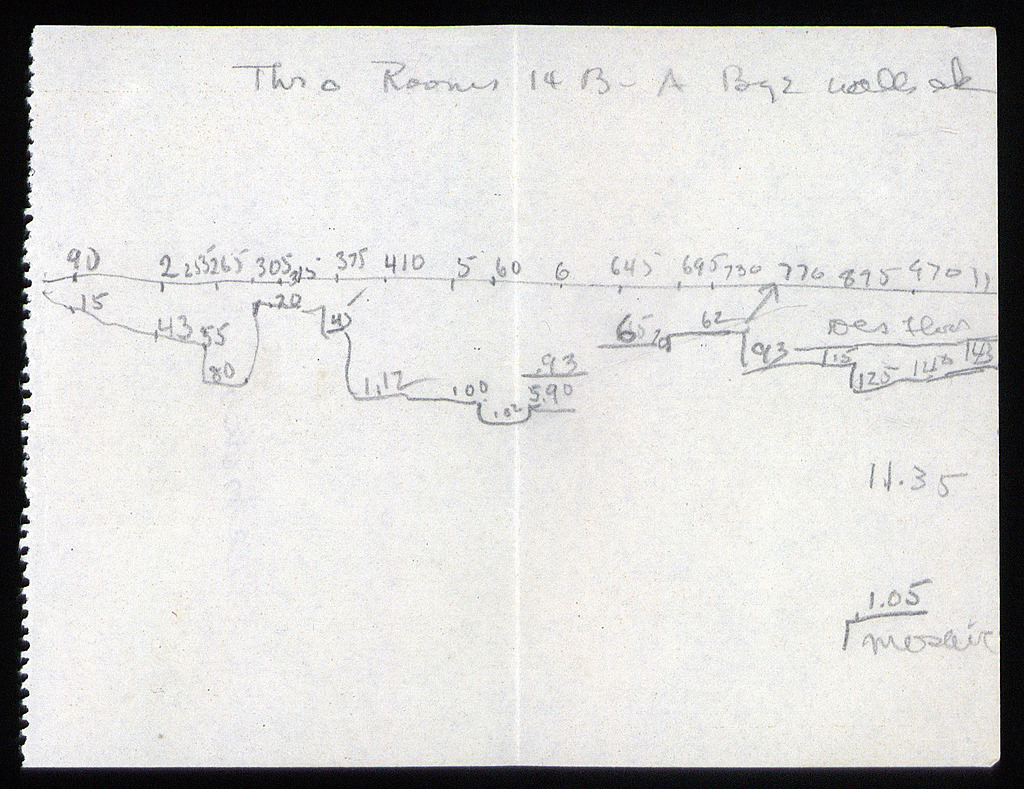 Thro Rooms 14 B - A Byz walls ok
90 2 255 265 305 315 375 410 5 60 6 645 695 730 770 895 970 11
15 43 55 80 20 45 1.12 100 102 .93 5.90 65 70 62 93 115 125 143 143
11.35
1.05
mosaic